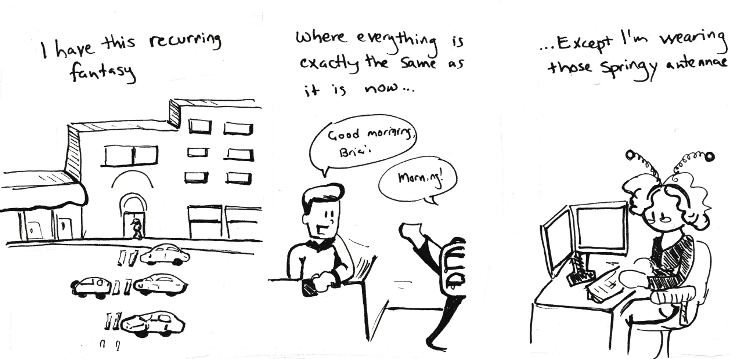 I have this recurring
fantasy
Where everything is
exactly the same as
it is now...
Good morning,
Morning!
...Except I'm wearing
those springy antennae